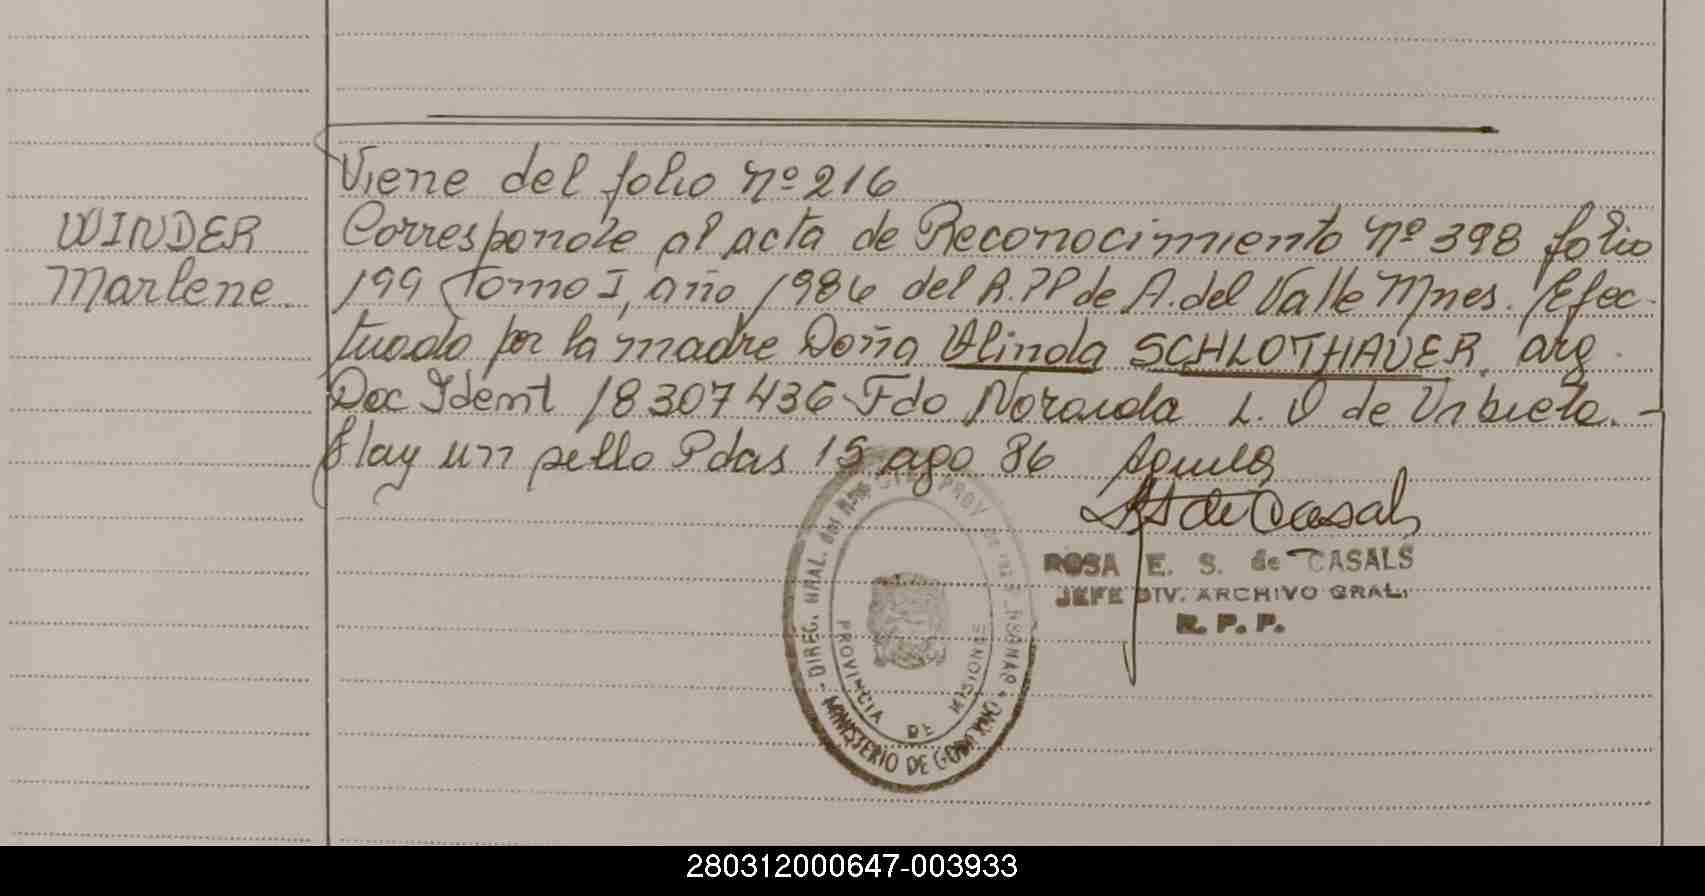 Viene del folio nº 216
WINDER
Marlene.
Corresponde al acta de Reconocimiento nº 398 folio
199 tomo I, año 1986 del R.PP de A. del Valle Mnes. Efec-
tuado por la madre Doña Olinda SCHLOTHAUER, arg.
Doc Ident 18307436 Fdo L. O de Urbieta.-
Hay un sello Pdas 15 ago 86
de Casals
ROSA E. S. de CASALS
JEFE DIV. ARCHIVO GRAL.
R. P. P.
DIREC. GRAL. del PROV. DE LAS PERSONAS
PROVINCIA DE MISIONES
MINISTERIO DE GOBIERNO
280312000647-003933